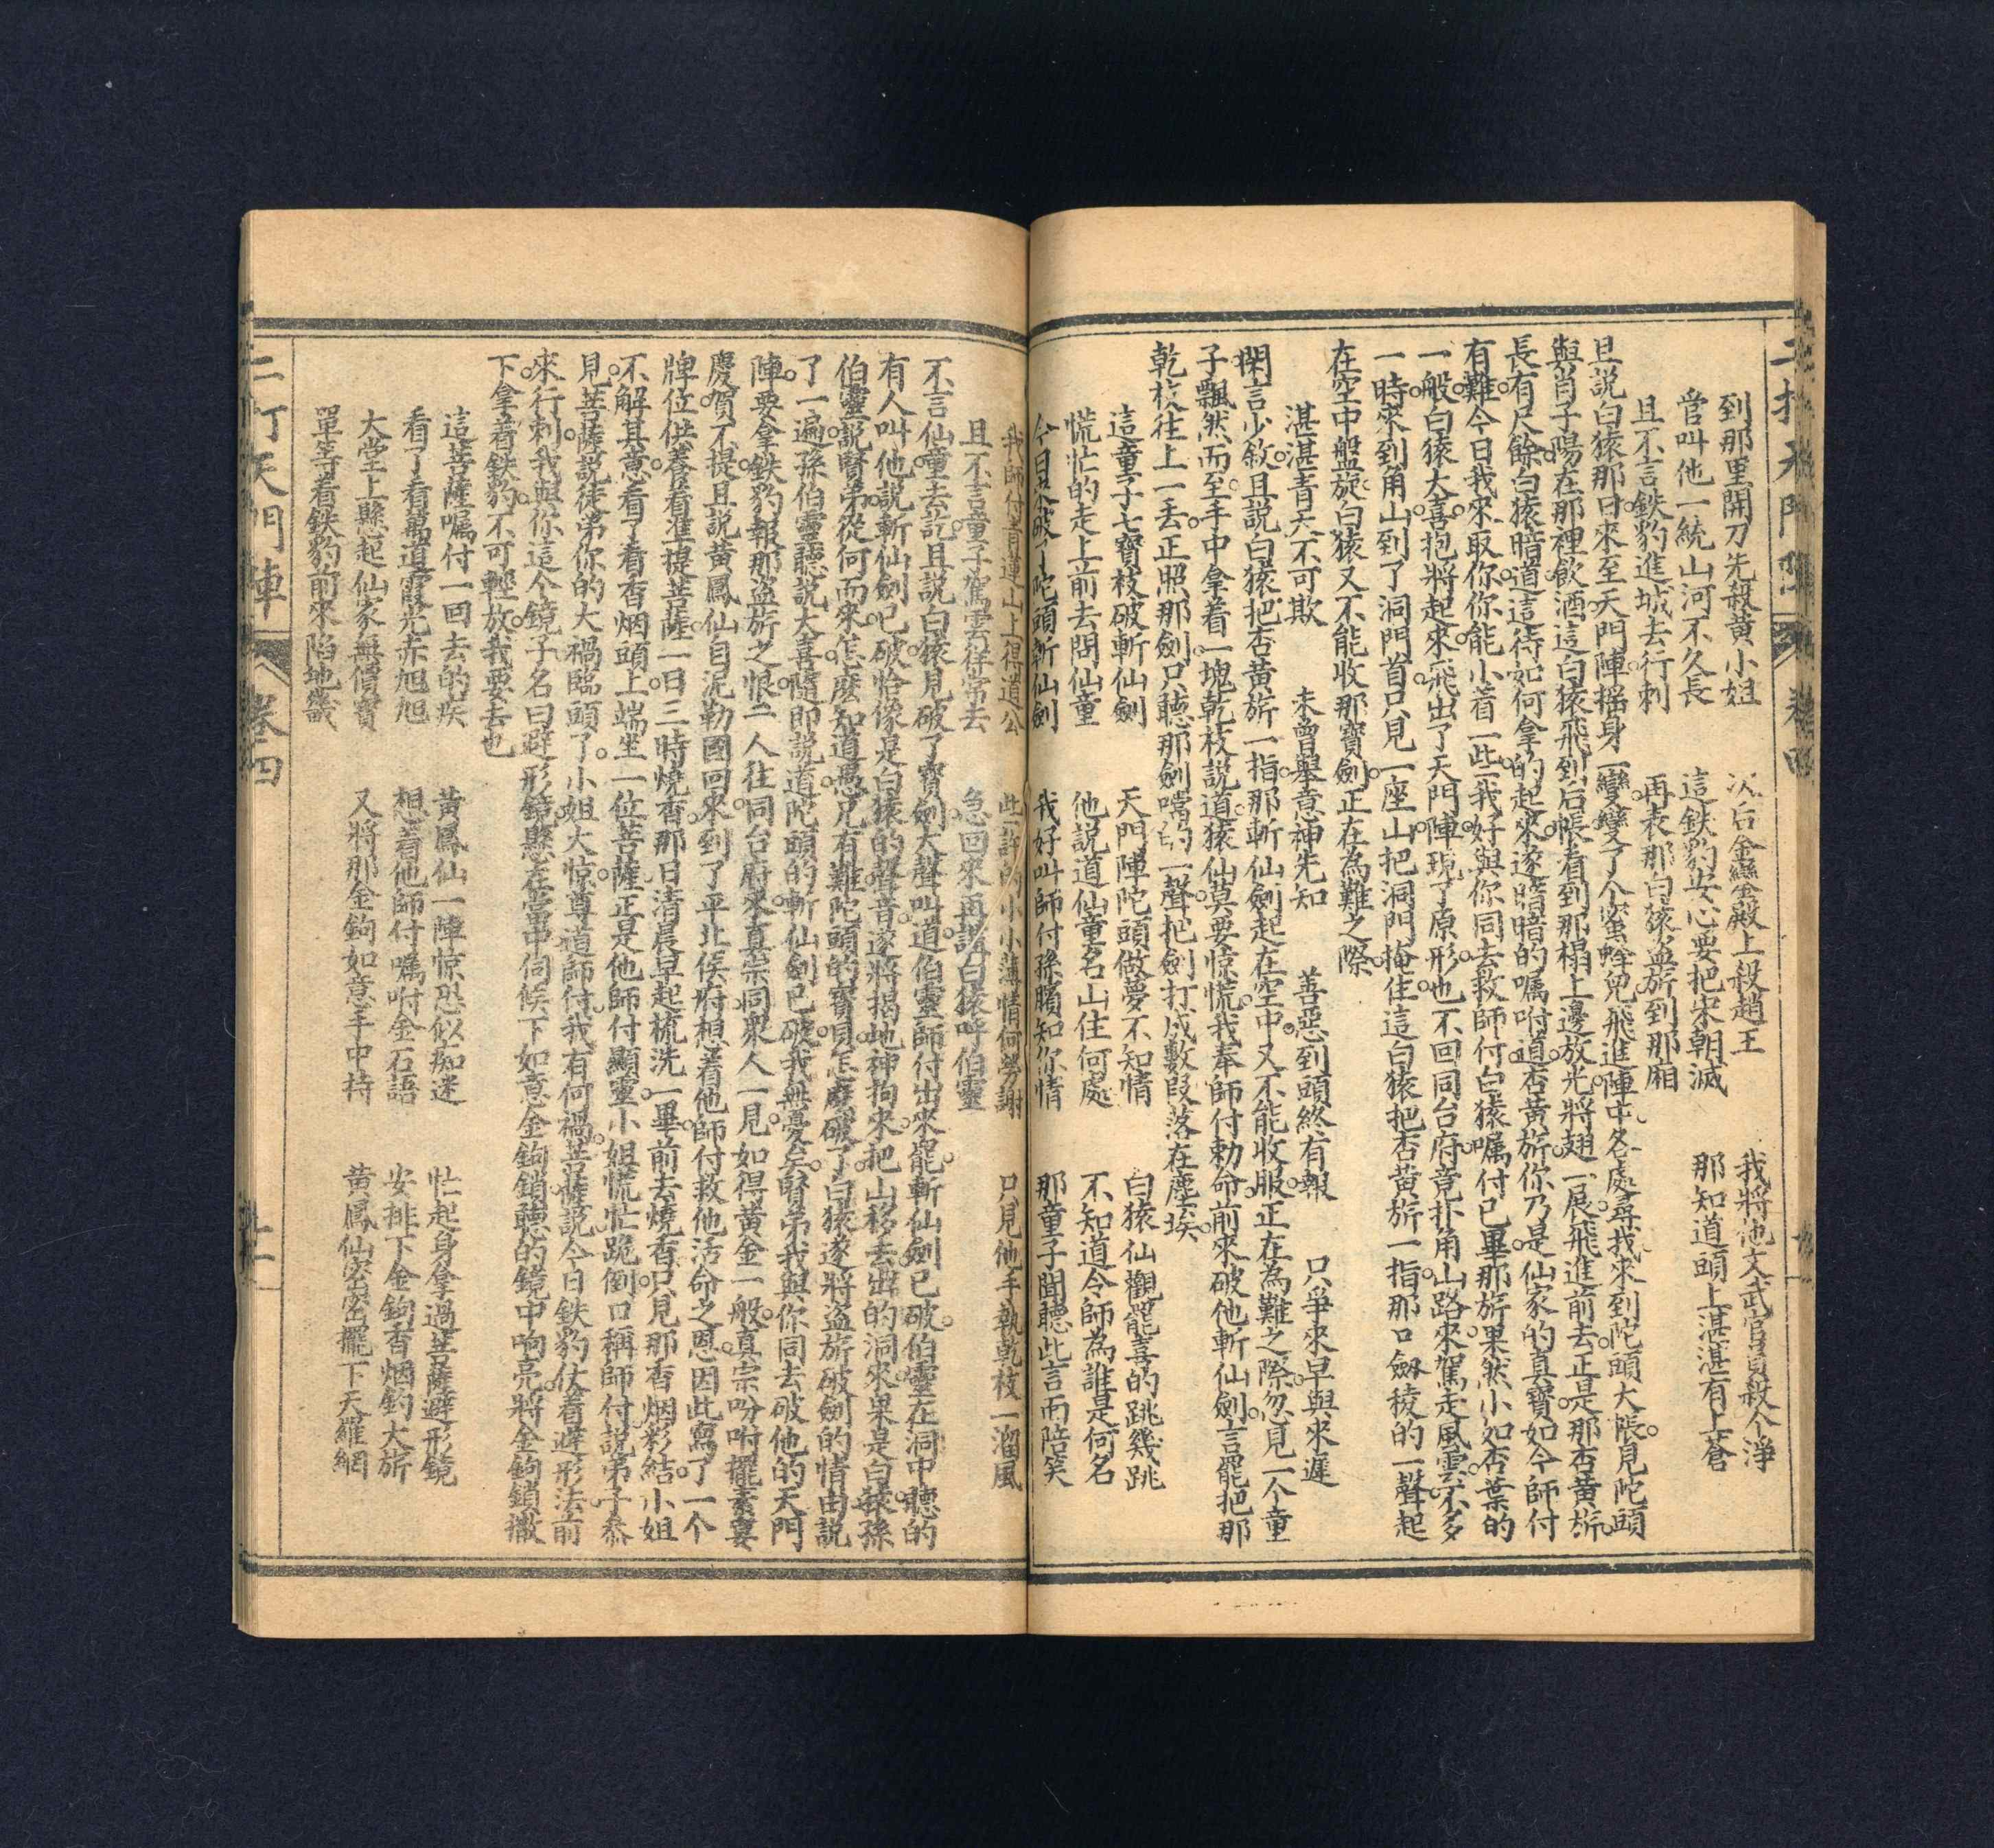 到那里開刀先殺黃小姐 次后金鑾殿上殺趙王 我將他文武官員殺个淨
管叫他一統山河不久長 這鉄豹安心要把宋朝滅 那知道頭上湛湛有上蒼
且不言鉄豹進城去行刺 再表那白猿盜旂到那廂
且説白猿那日來至天門陣摇身一變變了个蜜蜂兒飛進陣中各處尋找來到陀頭大帳見陀頭
與肖子陽在那裡飲酒這白猿飛到后帳看到那榻上邊放光將翅一展飛進前去正是那杏黃旂
長有尺餘白猿暗道這待如何拿的起來遂暗暗的嘱咐道杏黃旂你乃是仙家的真寶如今師付
有難今日我來取你你能小着一些我好與你同去救師付白猿嘱付已畢那旂果然小如杏葉的
一般白猿大喜抱將起來飛出了天門陣現了原形也不回同台府竟扑角山路來駕走風雲不多
一時來到角山到了洞門首只見一座山把洞門掩住這白猿把杏黃旂一指那口劔稜的一聲起
在空中盤旋白猿又不能收那寶劍正在為難之際
湛湛青天不可欺 未曾舉意神先知 善惡到頭終有報 只爭來早與來遲
閑言少敘且說白猿把杏黃旂一指那斬仙劍起在空中又不能收服正在為難之際忽見一个童
子飄然而至手中拿着一塊乾枝説道猿仙莫要惊慌我奉師付勅命前來破他斬仙劍言罷把那
乾枝往上一丢正照那劍只聽那劍噹的一聲把劍打成數段落在塵埃
這童子七寶枝破斬仙劍 天門陣陀頭做夢不知情 白猿仙觀罷喜的跳幾跳
慌忙的走上前去問仙童 他説道仙童名山住何處 不知道令師為誰是何名
今日來破了陀頭斬仙劍 我好叫師付孫臏知你情 那童子聞聽此言而陪笑
我師付青蓮山上得道公 些許的小小薄情何勞謝 只見他手執乾枝一溜風
且不言童子駕雲徉常去 急回來再講白猿呼伯靈
不言仙童去訖且説白猿見破了寶劍大聲叫道伯靈師付出來罷斬仙劍已破伯靈在洞中聽的
有人叫他説斬仙劍已破恰像是白猿的聲音遂將揭地神拘來把山移去出的洞來果是白猿孫
伯靈説賢弟從何而來怎麽知道愚兄有難陀頭的寶貝怎麽破了白猿遂將盜旂破劍的情由説
了一遍孫伯靈聽説大喜隨即説道陀頭的斬仙劍已破我無憂矣賢弟我與你同去破他的天門
陣要拿鉄豹報那盜旂之恨二人往同台府來真宗同衆人一見如得黃金一般真宗吩咐擺素宴
慶賀不提且說黃鳳仙自泥勒國回來到了平北侯府想着他師付救他活命之恩因此寫了一个
牌位供養着準提菩薩一日三時燒香那日清晨早起梳洗一畢前去燒香只見那香烟影結小姐
不解其意看了看香烟頭上端坐一位菩薩正是他師付顯靈小姐慌忙跪倒口稱師付説弟子叅
見菩薩説徒弟你的大禍臨頭了小姐大惊尊道師付我有何禍菩薩説今日鉄豹仗着避形法前
來行刺我與你這个鏡子名曰避形鏡懸在當中伺候下如意金鉤鎖聽的鏡中响亮將金鉤鎖撒
下拿着鉄豹不可輕放我要去也
這菩薩嘱付一回去的疾 黃鳳仙一陣惊恐似痴迷 忙起身拿過菩薩避形鏡
看了看萬道霞光赤旭旭 想着他師付嘱咐金石語 安排下金鉤香烟釣大旂
大堂上懸起仙家無價寶 又將那金鉤如意手中持 黃鳳仙密密擺下天羅網
單等着鉄豹前來陷地畿
二打天門陣 卷四